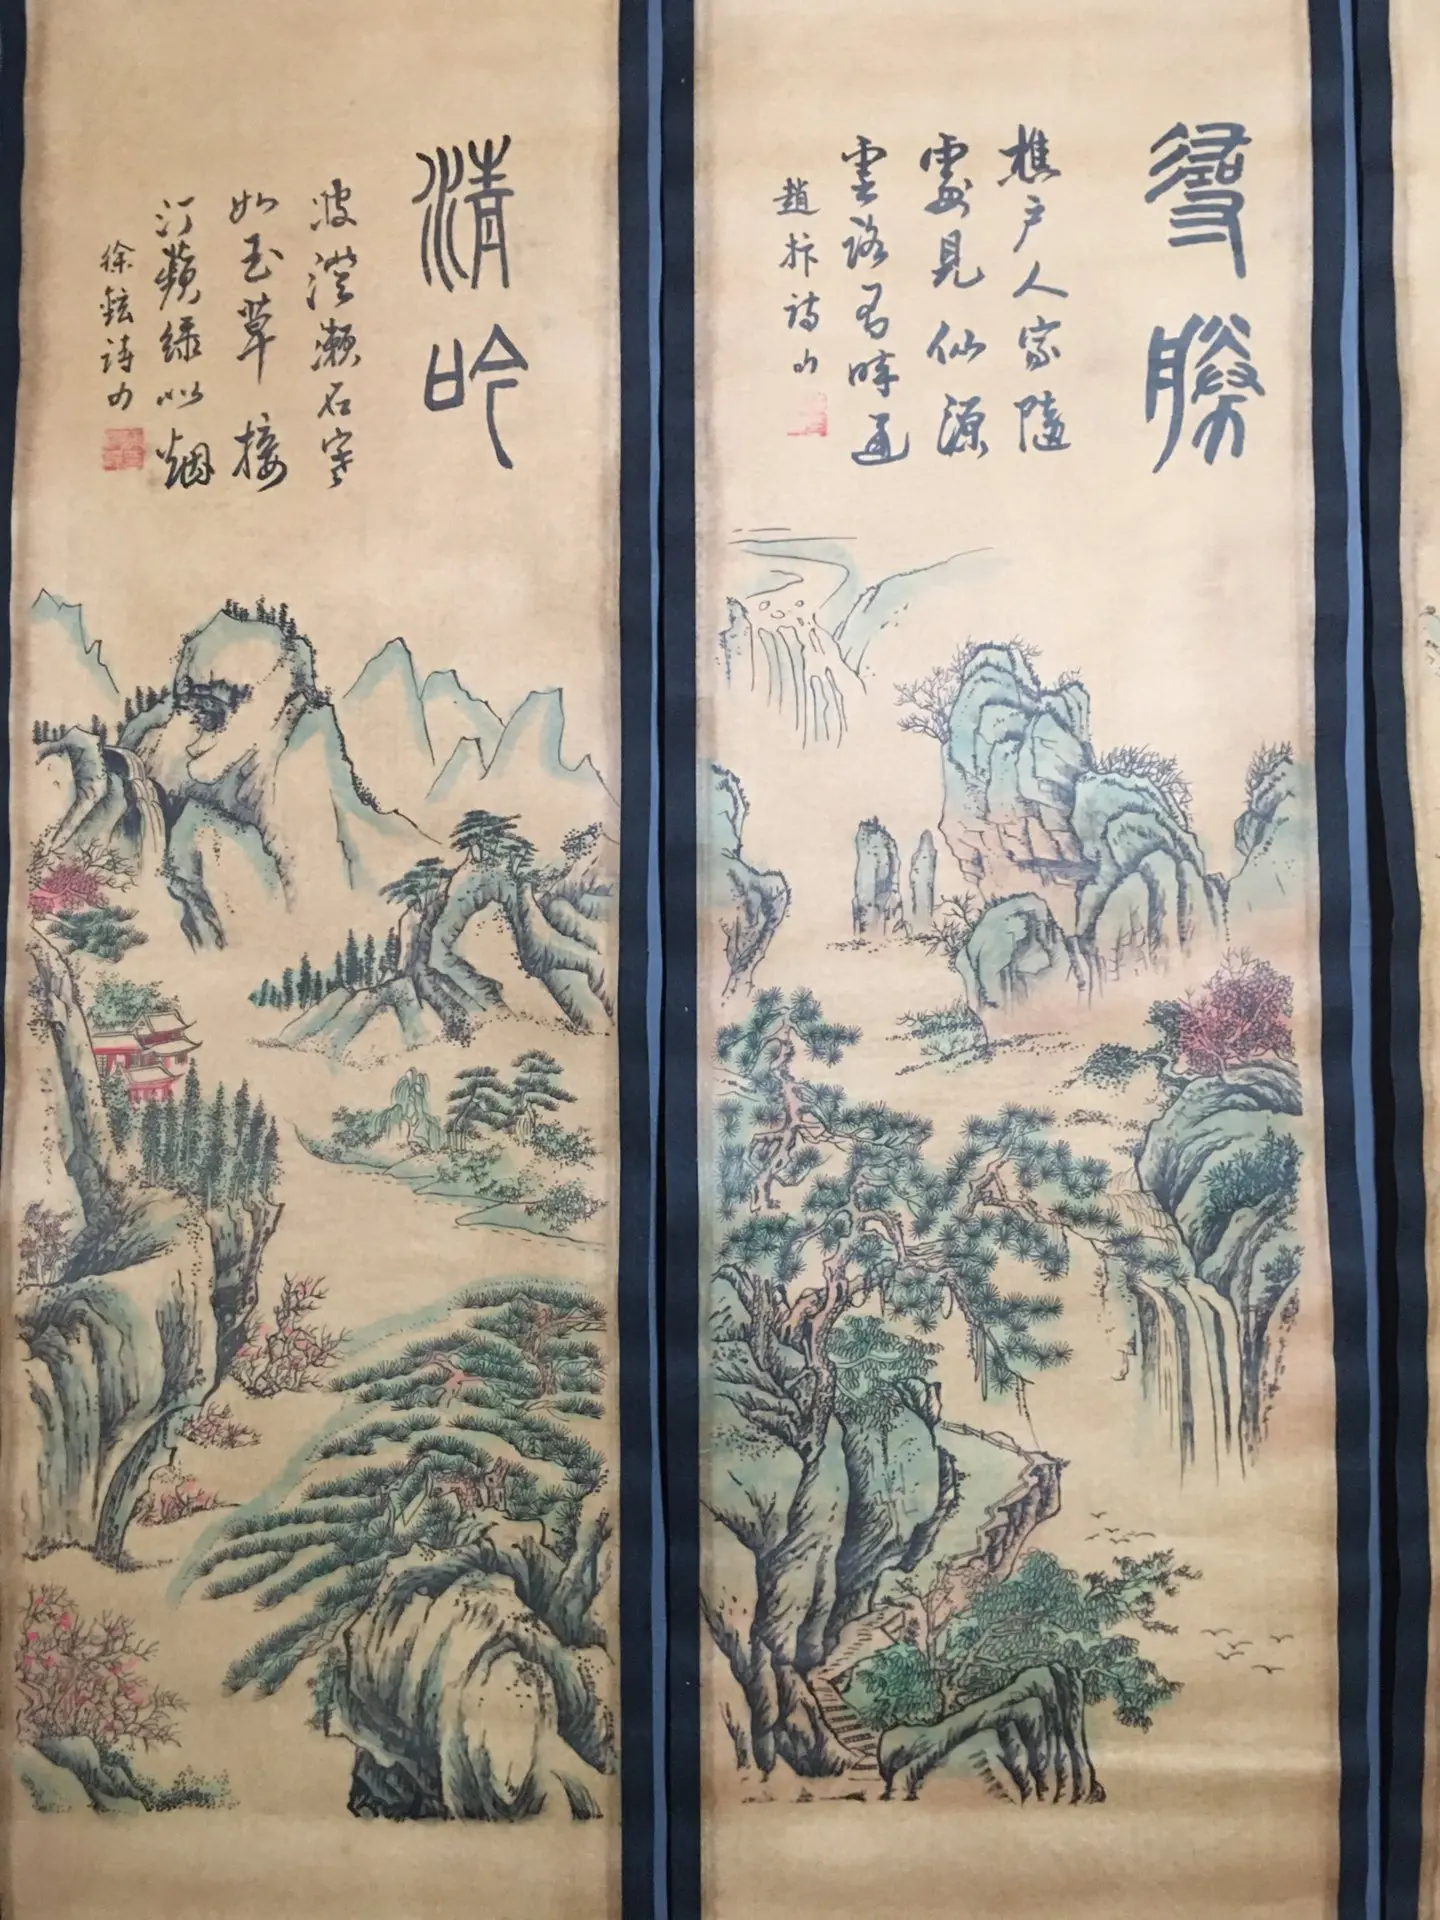 尋勝
樵户人家隨
處見仙源
雲路有時通
趙抃詩句
清吟
波澄瀨石寒
如玉草接
汀蘋緑似烟
徐鉉詩句